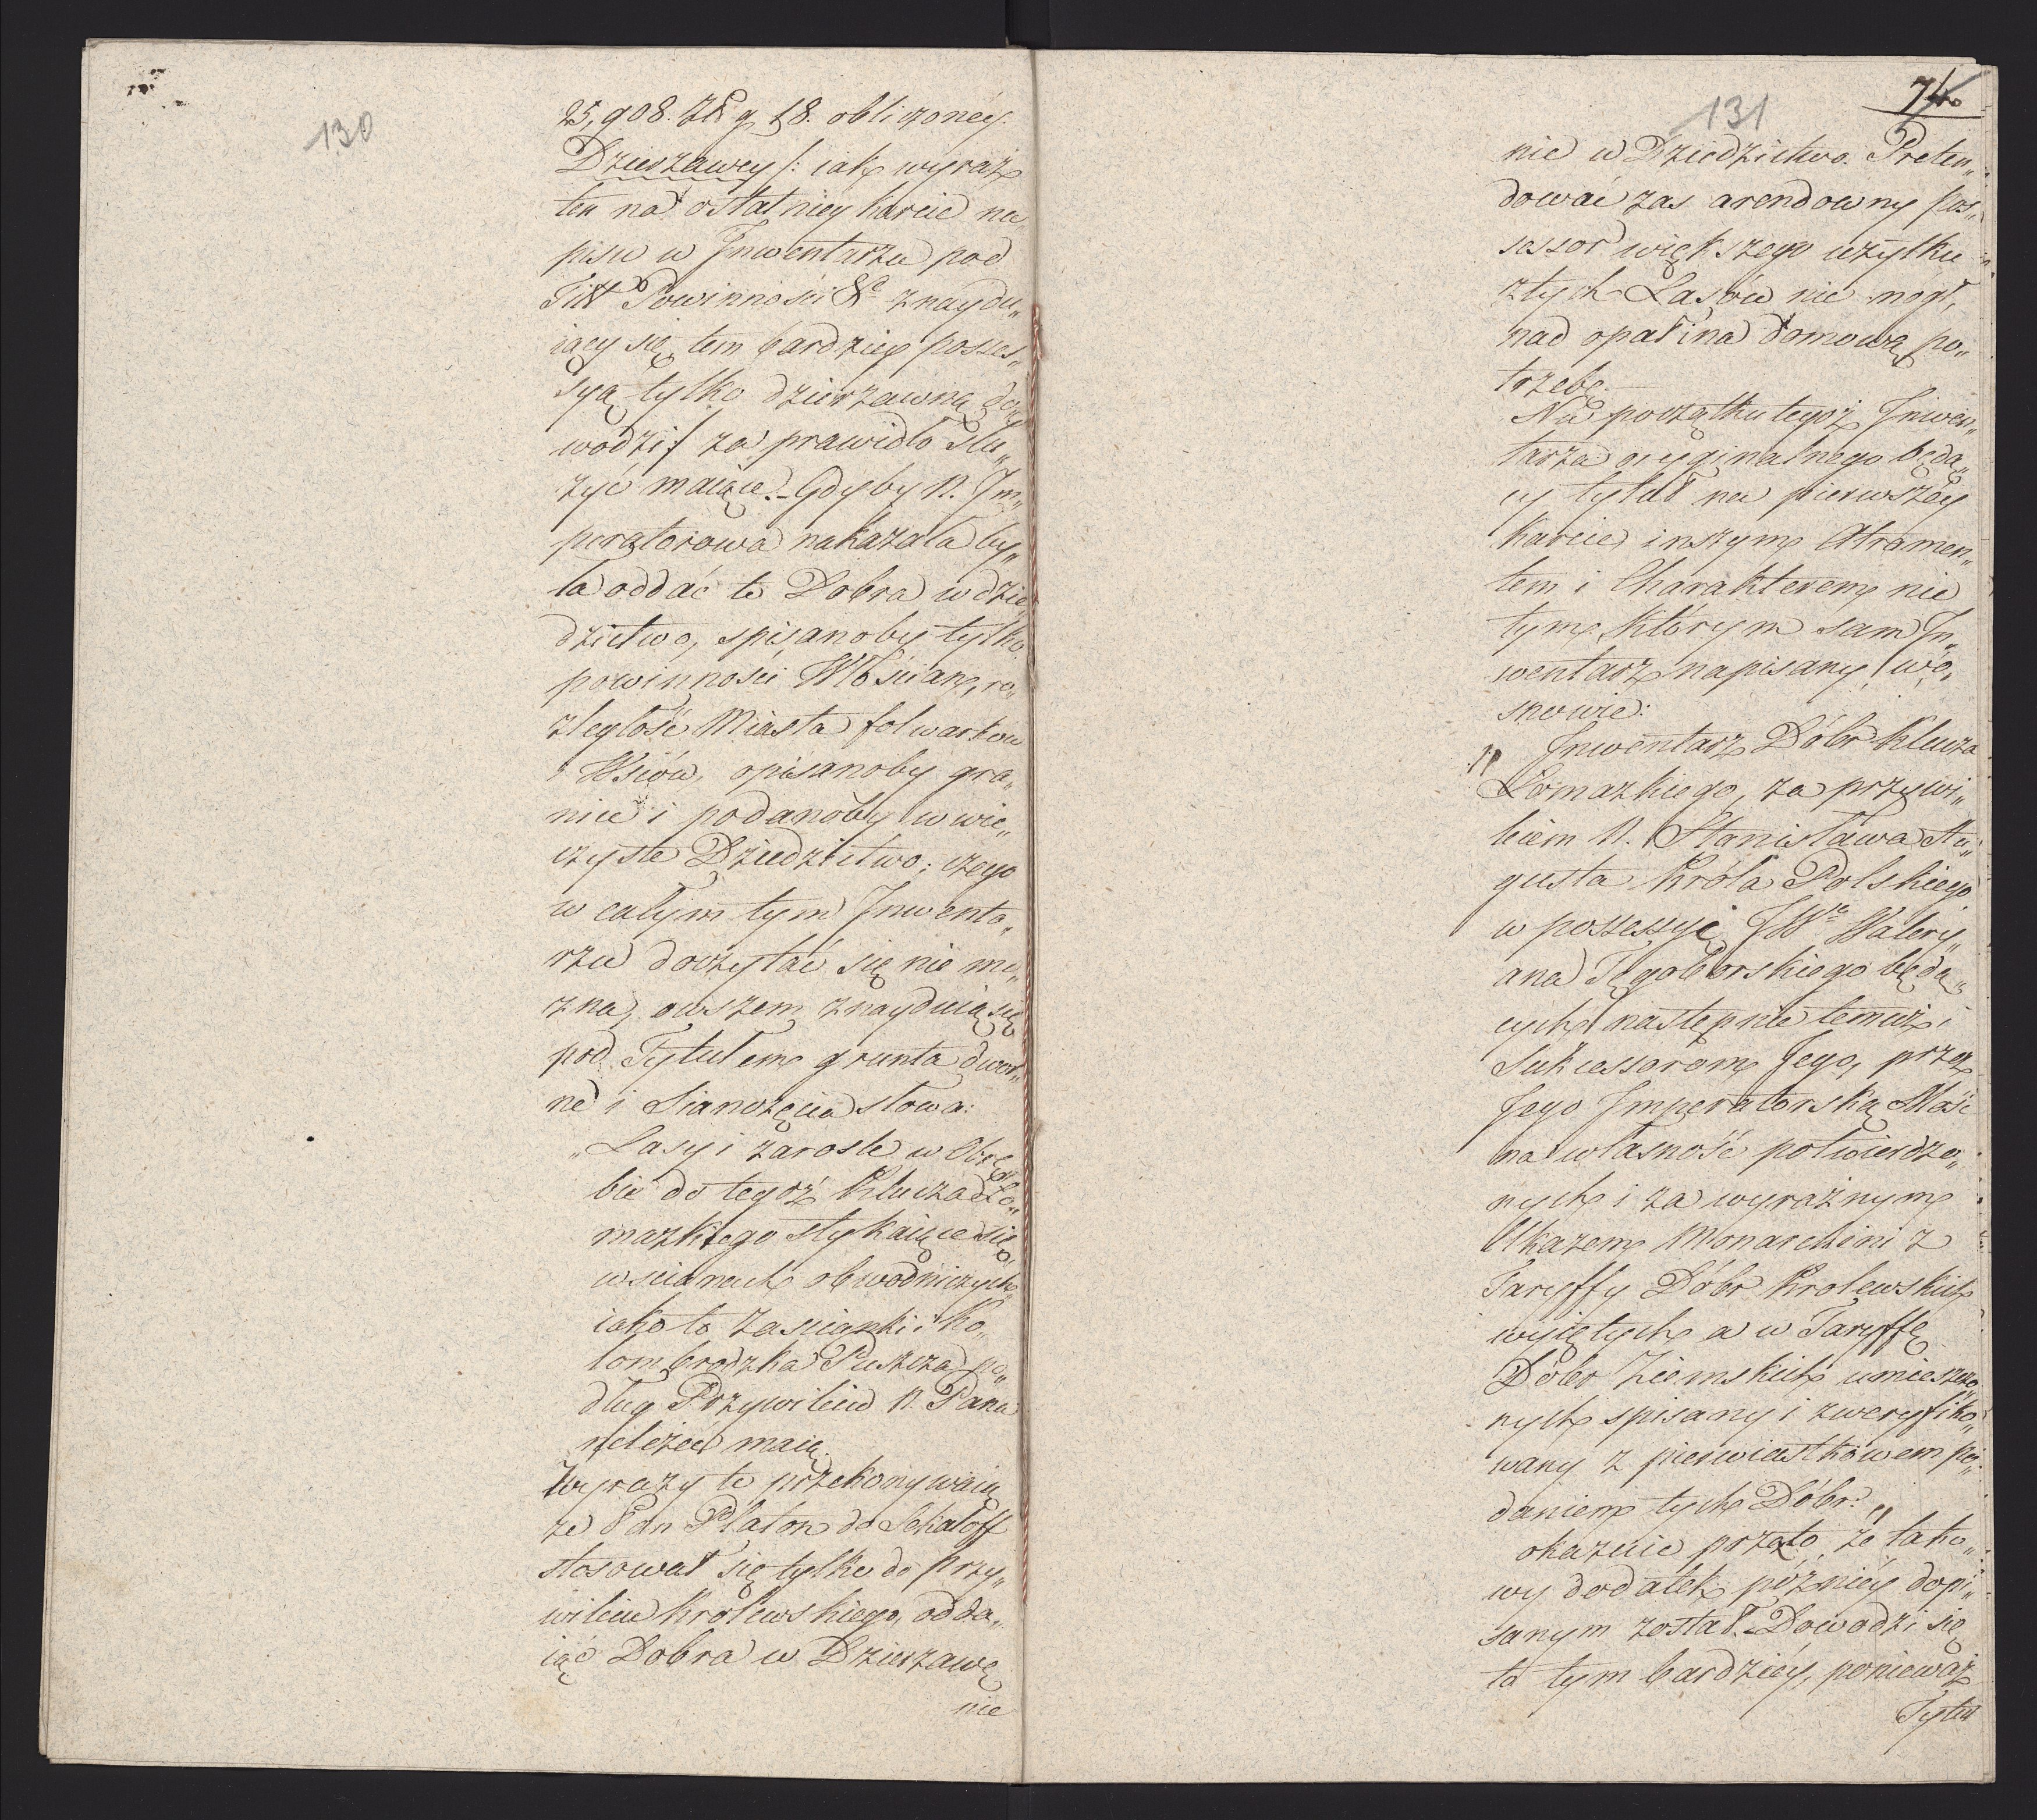 130
25,908. Złł g 18. obliczonéy.
Dzierzawey /: iak wyraz
ten na ostatniey karcie na
pisu w Inwentarzu pod
Titt Powinności &c znaydu„
iący się tem bardziey posses„
syą tylko dzierzawną do„
wodzi/ za prawidło słu„
żyć maiące. Gdyby N. Im„
peratorowa nakazała by„
ła oddać te Dobra w dzie„
dzictwo, spisanoby tylko
powinności Włościan, ro„
zległość Miasta folwarkow
i Wsiów, opisanoby gra„
nice i podanoby w wie„
czyste Dziedzictwo; czego
w całym tym Inwenta„
rzu doczytać się nie mo„
zna, owszem znayduią się
pod Tytułem grunta dwor„
ne i Sianożęcia słowa:
„Lasy i zarosle w Obrę„
bie do tegoż Klucza Ło„
mazkiego stykaiące się
w scianach obwodniczych
iako to Zasianki i Ko„
lombrodzka Puszcza po„
dług Przywileiu N. Pana
należeć maią.
Wyrazy te przekonywaią
że Pan Platon do Sekatoff
stosował się tylko do przy„
wileiu Królewskiego, odda„
iąc Dobra w Dzierzawę
nie
131
74
nie w Dziedzictwo. Preten„
dować zas arendowny pos„
sessor większego użytku
z tych Lasów nie mogł,
nad opał i na domową po„
trzebę.
Na początku tegoż Inwen„
tarza oryginalnego będą„
cy tytuł na pierwszéy
karcie inszym Atramen„
tem i Charakterem nie
tym, którym sam In„
wentarz napisany, w o„
snowie:
„Inwentarz Dóbr Klucza
Łomazkiego, za przywi„
leiem N. Stanisława Au„
gusta Króla Polskiego
w possessyi JWo Walery„
ana Tęgoborskiego będą„
cych następnie temuż i
Sukcessorom Jego, przez
Jego Imperatorską Mość
na własność potwierdzo„
nych i za wyraźnym
Ukazem Monarchini z
Taryffy Dóbr Krolewskich
wyiętych a w Taryffę
Dóbr Ziemskich umieszczo„
nych spisany i zweryfiko„
wany z pierwiastkowem po„
daniem tych Dóbr: „
okazuie przeto że tako„
wy dodatek późniéy dopi„
sanym został. Dowodzi się
to tym bardziéy, ponieważ
Tytuł